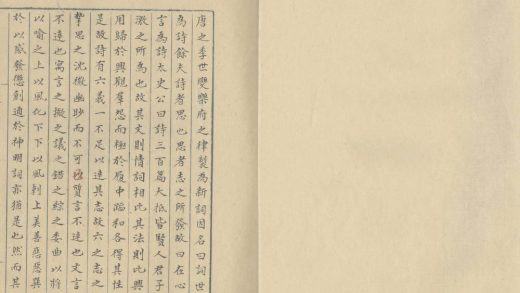 唐之季世變樂府之律製為新詞因名曰詞世
為詩餘夫詩者思也思者志之所發故曰在心
言為詩太史公曰詩三百篇大抵皆賢人君子
激之所為也故其文則情詞相比其法則比興
用歸於興觀羣怨而極於履中蹈和各得其性
是故詩有六義一不足以達其志故六之志之
摯思之沈微幽眇而不可質言不達也文言
不達也寓言之擬之議之錯之綜之委曲以將
以喻之上以風化下下以風刺上美善惡惡興
於以感發懲創通於神明詞亦猶是也然而其